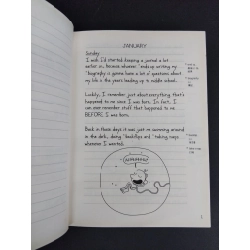 JANUARY
Sunday
I wish I'd started keeping a journal a lot
earlier on, because whoever ends up writing my
biography is gonna have a lot of questions about
my life in the years leading up to middle school.
Luckily, I remember just about everything that's
happened to me since I was born. In fact, I
can even remember stuff that happened to me
BEFORE I was born.
Back in those days it was just me swimming around
in the dark, doing backflips and taking naps
whenever I wanted.
1